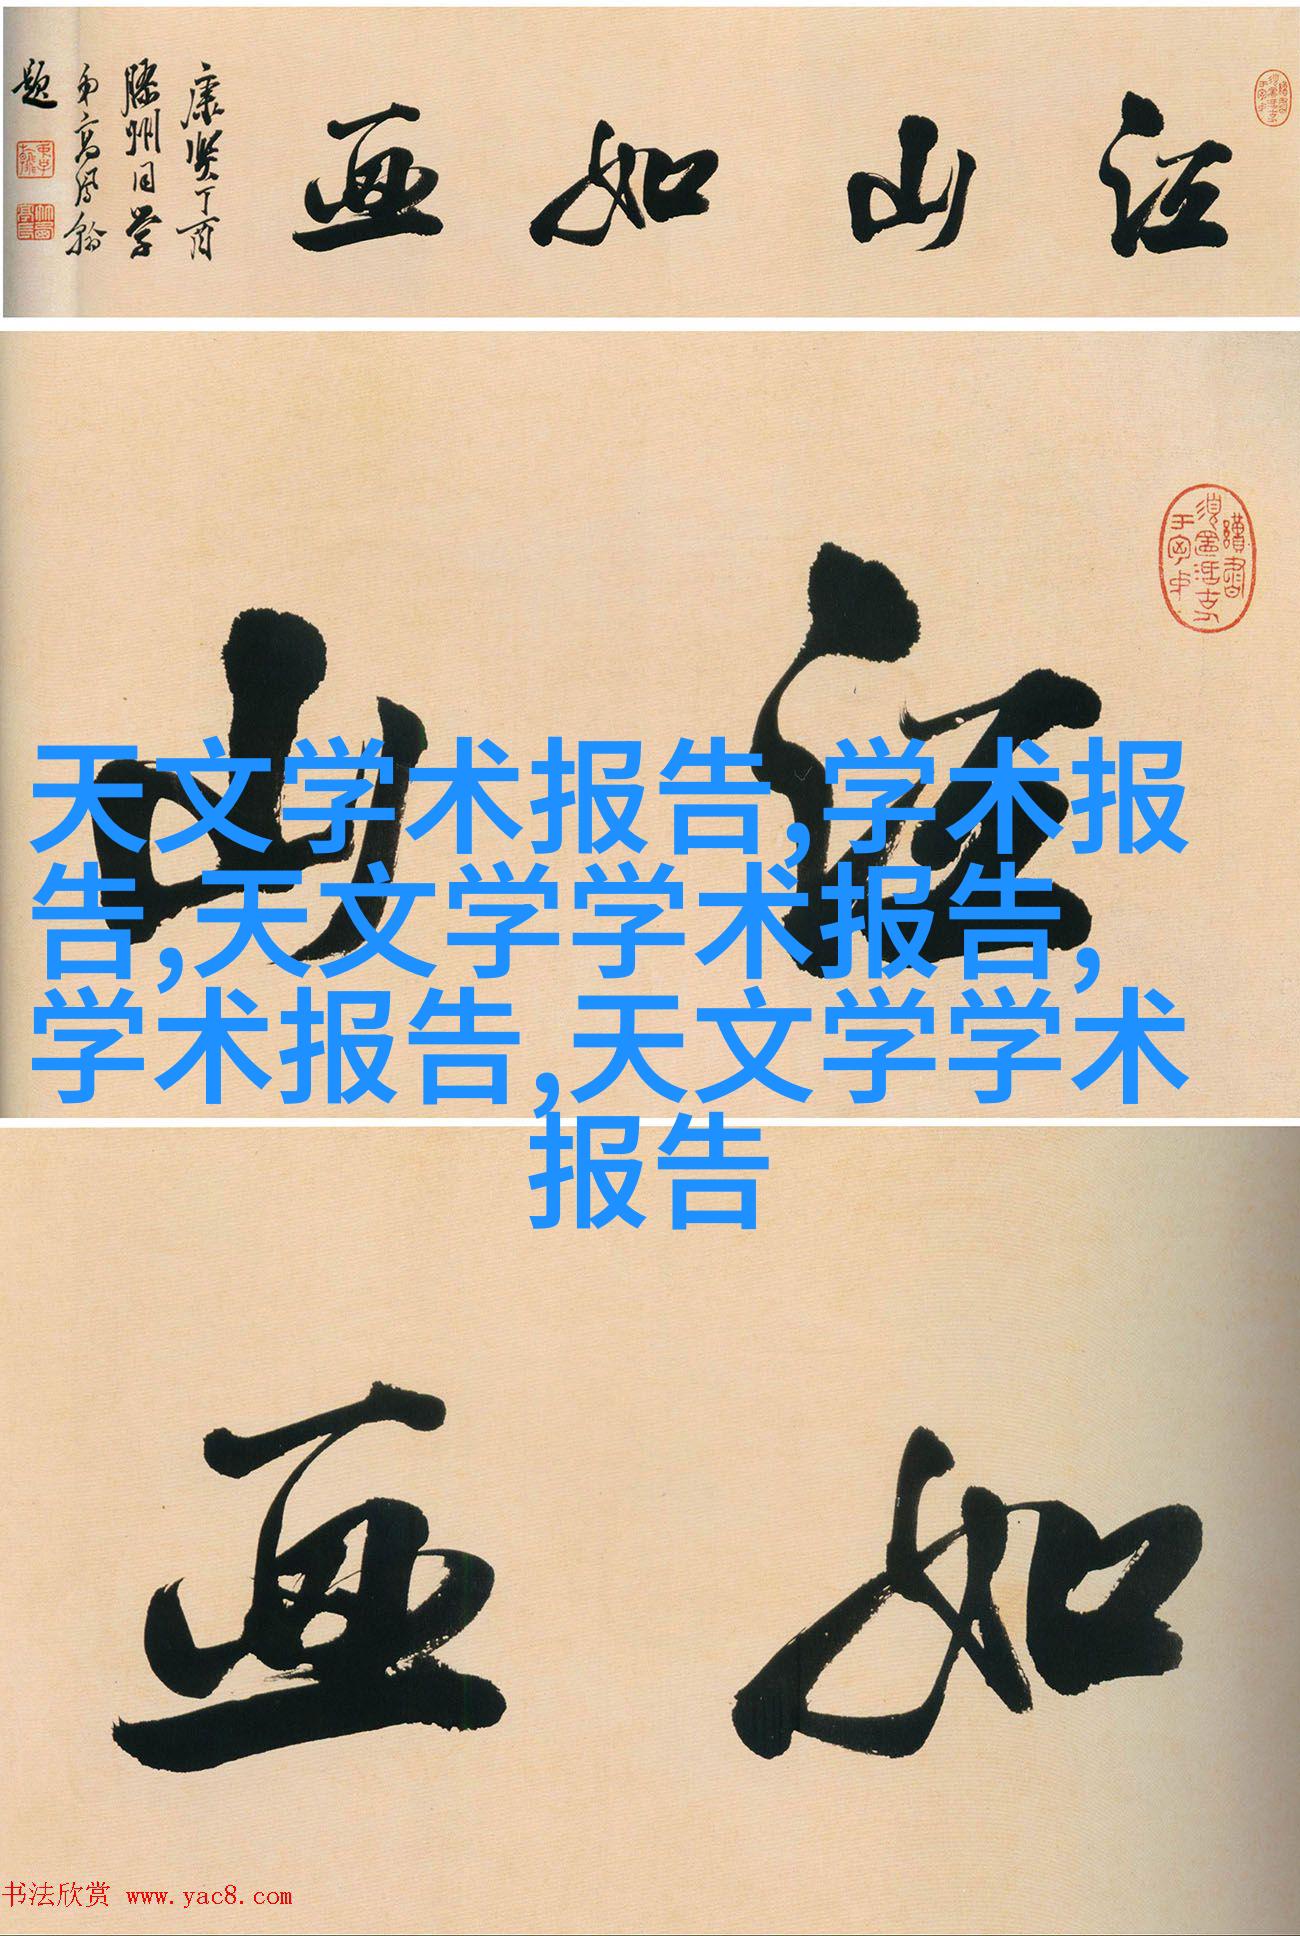 江山如画
康贤丁酉
滕州同学
弟高凤翰
题
山江
天文学术报告,学术报
告,天文学学术报告,
学术报告,天文学学术
报告
画如
书法欣赏 www.yac8.com